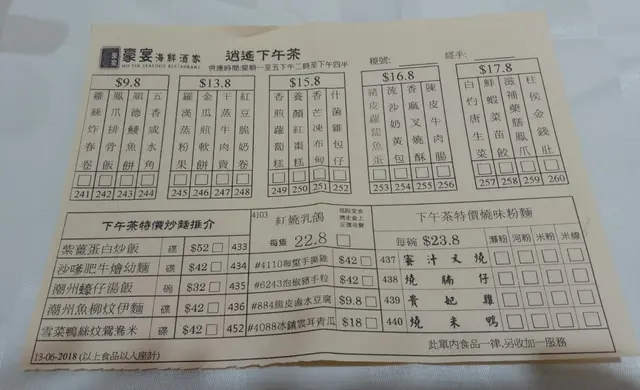 豪宴海鮮酒家
HO YIN SEAFOOD RESTAURANT
逍遙下午茶
供應時間:星期一至五下午二時至下午四半
檯號:
經手:
$9.8
雞絲炸春卷 241
鳳爪排骨飯 242
順德鯪魚餅 243
五香咸水角 244
$13.8
羅漢蒸粉果 245
金瓜煎軟餅 246
干蒸牛肉賣 247
紅豆脆奶卷 248
$15.8
香煎蘿蔔糕 249
養顏紅棗糕 250
香芒凍布甸 251
什菌雞包仔 252
$16.8
豬皮蘿蔔魚蛋 253
流沙奶黃包 254
香麻叉燒酥 255
陳皮牛肉腸 256
$17.8
白灼唐生菜 257
鮮蝦菜苗餃 258
滋補藥膳鳳爪 259
柱侯金錢肚 260
下午茶特價炒麵推介
紫薑蛋白炒飯 碟 $52 433
沙嗲肥牛燴幼麵 碟 $42 434
潮州蠔仔湯飯 碗 $32 435
潮州魚柳炆伊麵 碟 $42 436
雪菜鴨絲炆鴛鴦米 碟 $42 452
4103 紅燒乳鴿
每隻 22.8
#4110海蜇手撕雞 $42
#6243泡椒豬手粒 $42
#884脆皮滷水豆腐 $9.8
#4088冰鎮雲耳青瓜 $18
下午茶特價燒味粉麵
每碗 $23.8 瀨粉 河粉 米粉 米線
437 蜜汁叉燒
438 燒腩仔
439 貴妃雞
440 燒米鴨
13-06-2018 (以上食品以入座計)
此單內食品一律,另收加一服務